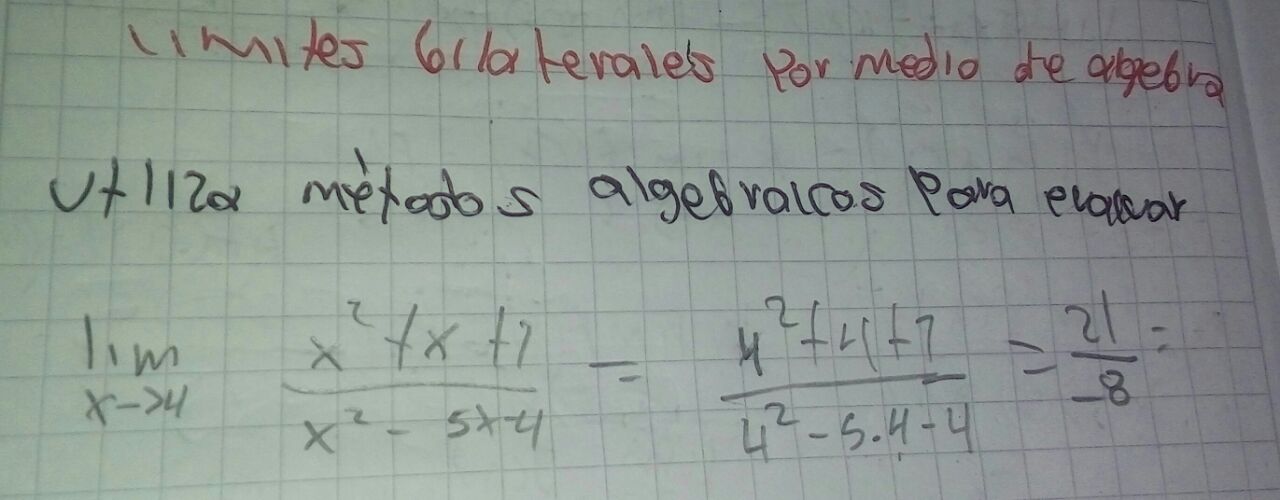 limites bilaterales por medio de algebra
utiliza métodos algebraicos para evaluar
lim x->4 x² + x + 1 / x² - 5x - 4 = 4² + 4 + 1 / 4² - 5.4 - 4 = 21 / -8 =